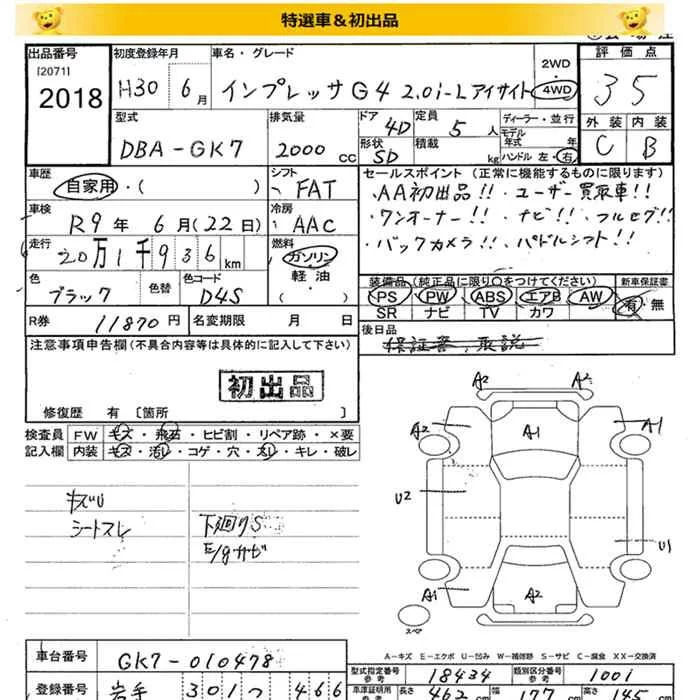 特選車＆初出品
出品番号 初度登録年月 車名・グレード 2WD 評価点
[2071]
2018 H30 6月 インプレッサG4 2.0i-Lアイサイト 4WD 35
型式 排気量 ドア 定員 ディーラー・並行 外装 内装
DBA-GK7 2000cc 4D 5人 モデル年式 年 C B
形状 積載 ハンドル 左・右
5D kg
車歴 シフト セールスポイント（正常に機能するものに限ります）
自家用・( ) FAT ・AA初出品!! ・ユーザー買取車!!
車検 冷房 ・ワンオーナー!! ・ナビ!! ・フルセグ!!
R9年 6月(22日) AAC ・バックカメラ!! ・パドルシフト!!
走行 燃料
20万1千936km ガソリン
軽・油
・( )
色 色替 色コード 装備品（純正品に限り〇をつけてください） 新車保証書
ブラック D4S PS PW ABS エアB AW 有・無
SR ナビ TV カワ
R券 11870円 名変期限 月 日 後日品
保証書、取説
注意事項申告欄（不具合内容等は具体的に記入して下さい）
初出品
修復歴 有 〔箇所 〕
検査員 FW キズ・飛石・ヒビ割・リペア跡・×要
記入欄 内装 キズ・汚レ・コゲ・穴・スレ・キレ・破レ
キズU
シートスレ
下廻りS
E/gサビ
A2 A2
A2 A1 A1
U2
U1
A1 A2
スペア
A－キズ E－エクボ U－凹み W－補修跡 S－サビ C－腐食 XX－交換済
車台番号 GK7-010478
型式指定番号参考 18434 類別区分番号参考 1001
登録番号 岩手 301つ 466
車庫証明用参考 長さ 462cm 幅 177cm 高さ 145cm